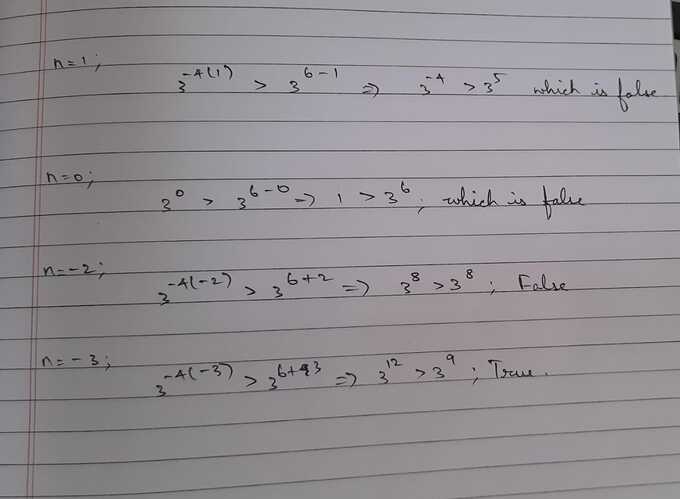 n=1;
3^{-4(1)} > 3^{6-1} => 3^{-4} > 3^{5} which is false
n=0;
3^{0} > 3^{6-0} => 1 > 3^{6}; which is false
n=-2;
3^{-4(-2)} > 3^{6+2} => 3^{8} > 3^{8}; False
n=-3;
3^{-4(-3)} > 3^{6+3} => 3^{12} > 3^{9}; True.